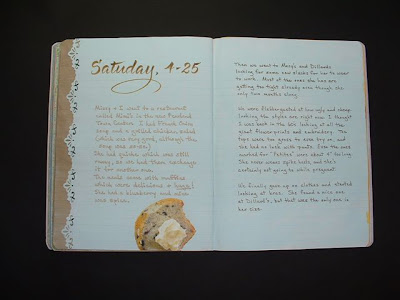 Satuday, 1-25
Missy & I went to a restaurant
called Mimi's in the new Pearland
Town Center. I had French Onion
soup and a grilled chicken salad
(which was very good, although the
soup was so-so)
She had quiche which was still
runny, so we had them
it for another one.
The meals came with muffins
which were delicious &
She had a blueberry and mine
was spice.
Then we went to Macy's and Dillards
looking for some new slacks for her to wear
to work. Most of the ones she has are
getting too tight already even though it's
only two months along.
We were flabbergasted at how ugly, and cheap
looking the styles are right now. I thought
I was back in the 60s looking at all the
great flower prints and embroidery. The
tops were too gross to even try on, and
she had no luck with pants. Even the ones
marked for "Petites" were about 4" too long.
She never wears spike heels, and she's
certainly not going to while pregnant.
We finally gave up on clothes and started
looking at bras. She found a nice one
at Dillard's, but that was the only one in
her size.